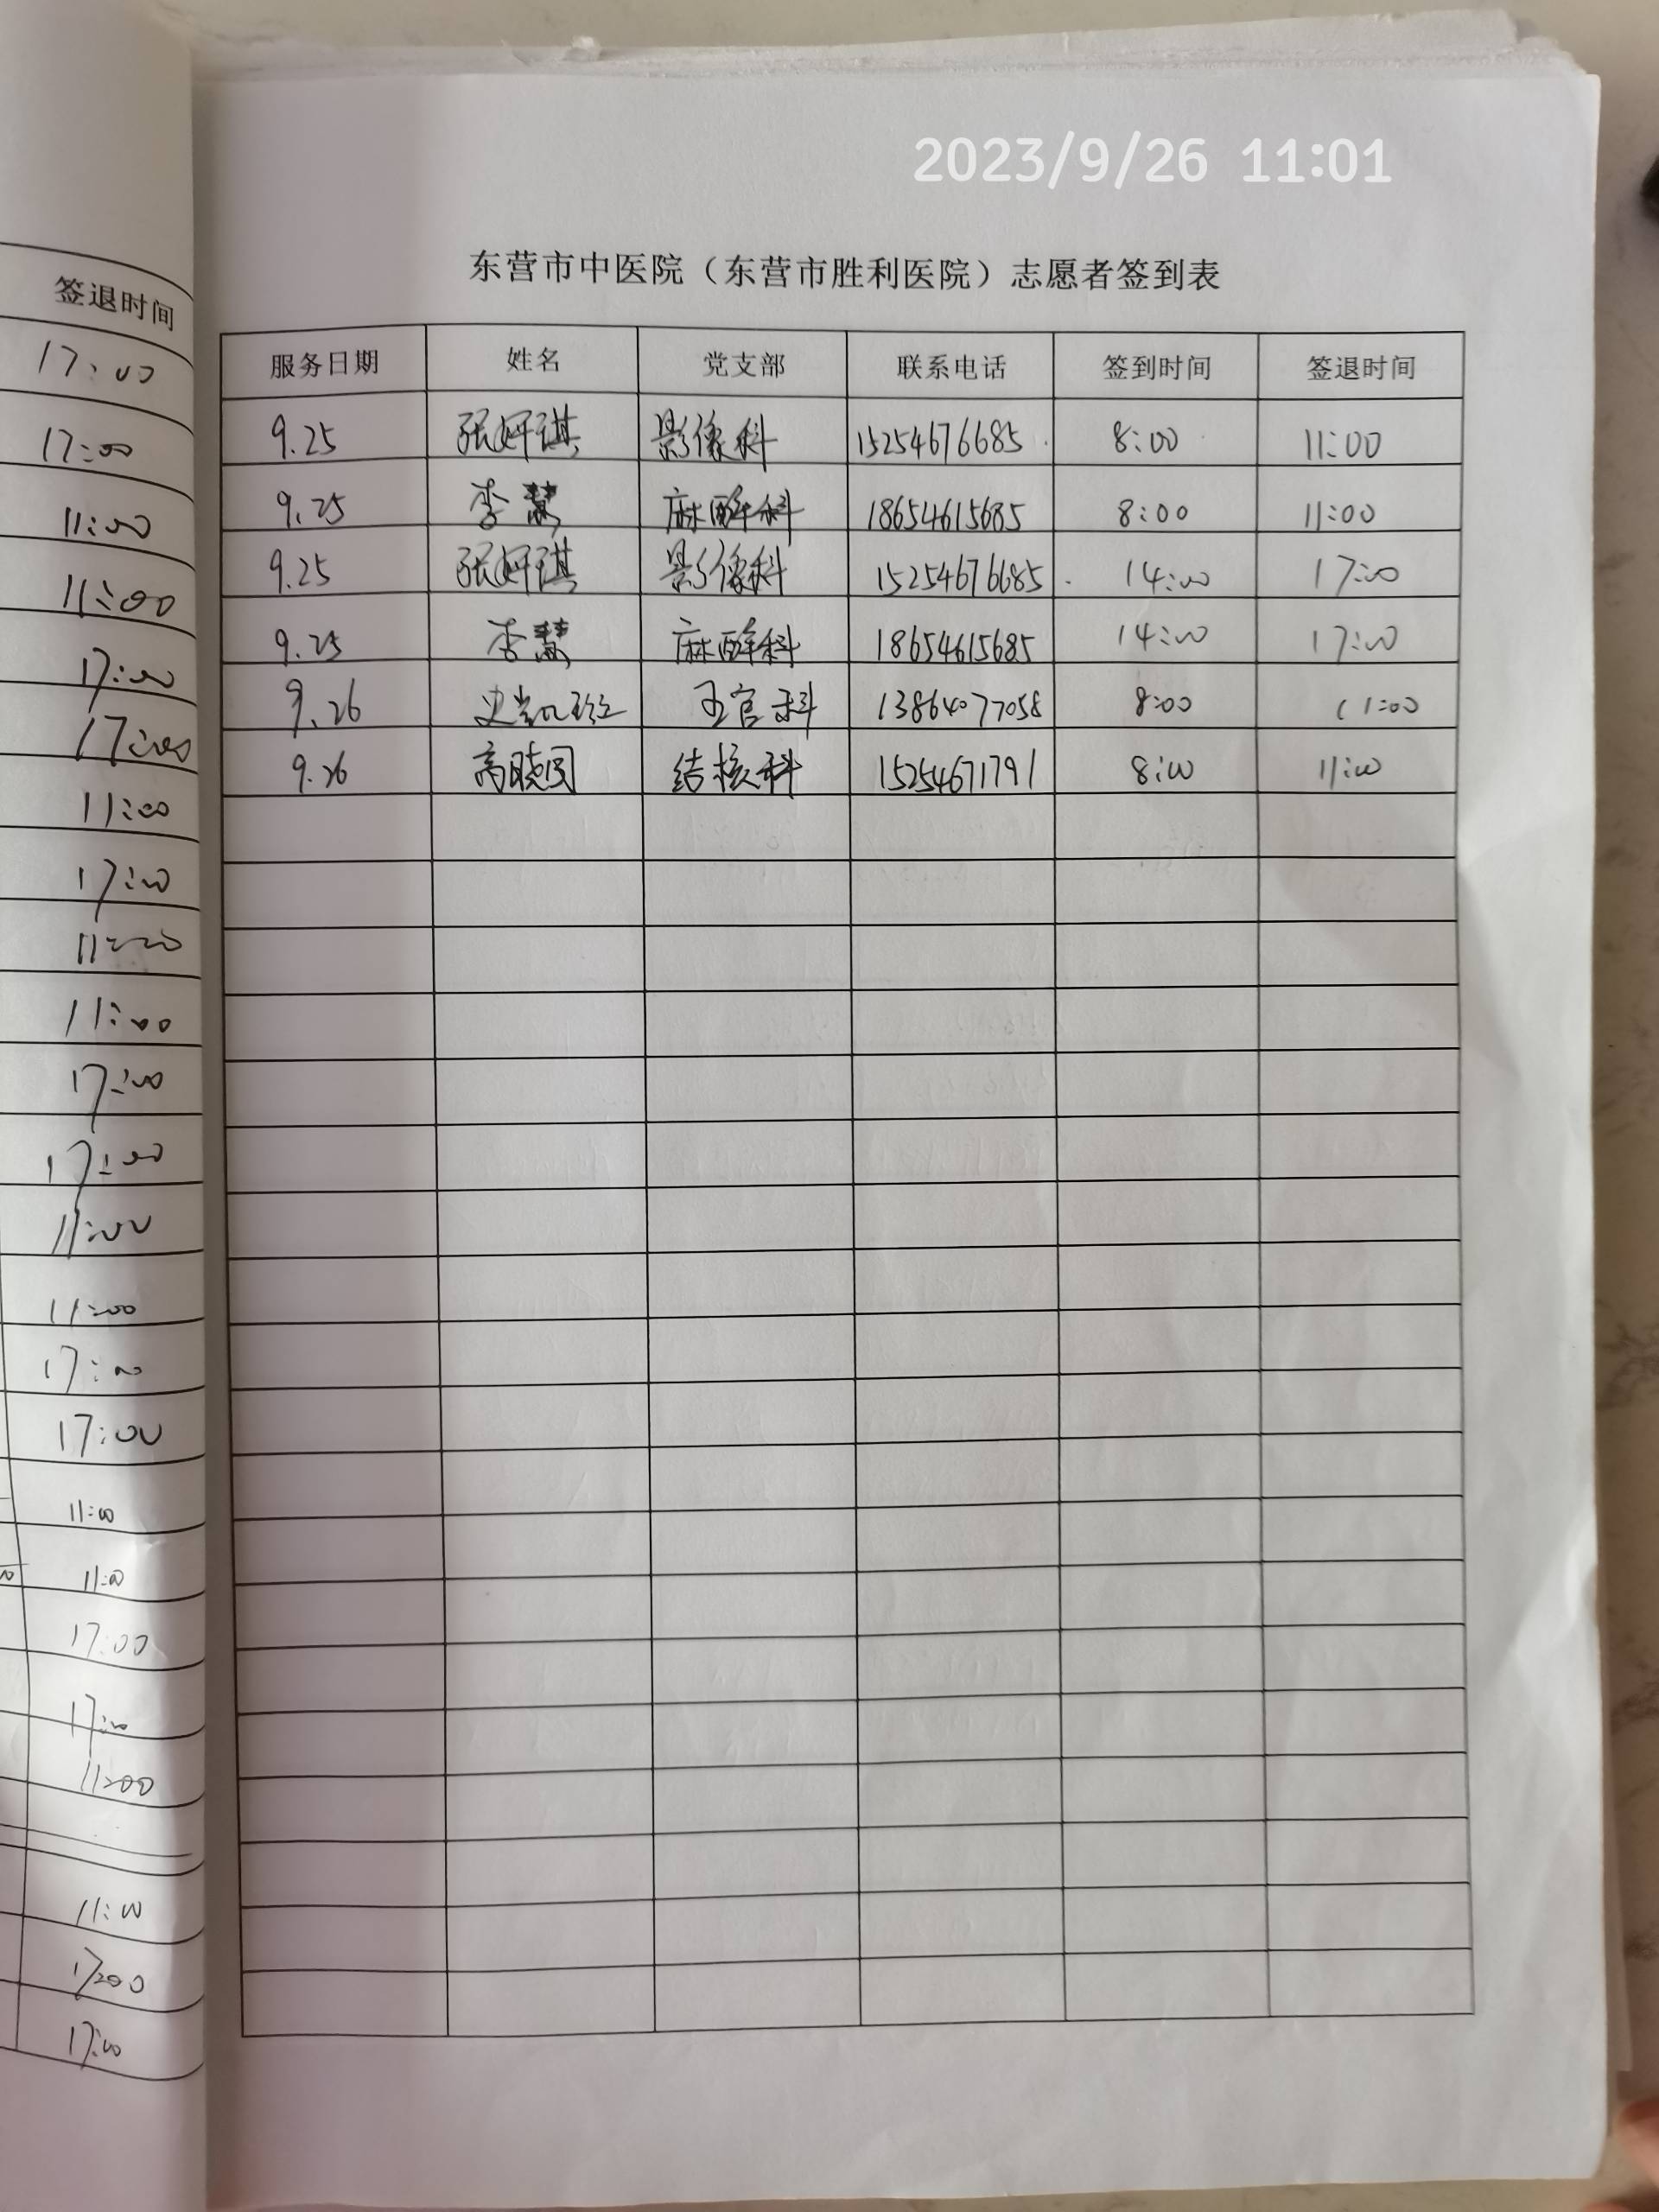 2023/9/26 11:01
东营市中医院（东营市胜利医院）志愿者签到表
服务日期 姓名 党支部 联系电话 签到时间 签退时间
9.25 张妍琪 影像科 15254676685 8:00 11:00
9.25 李慧 麻醉科 18654615685 8:00 11:00
9.25 张妍琪 影像科 15254676685 14:00 17:00
9.25 李慧 麻醉科 18654615685 14:00 17:00
9.26 史凯 五官科 13864077058 8:00 11:00
9.26 高晓 结核科 15254671791 8:00 11:00
签退时间
17:00
17:00
11:00
11:00
17:00
17:00
11:00
17:00
11:00
11:00
17:00
17:00
11:00
11:00
17:00
17:00
11:00
11:00
17:00
17:00
11:00
11:00
17:00
17:00